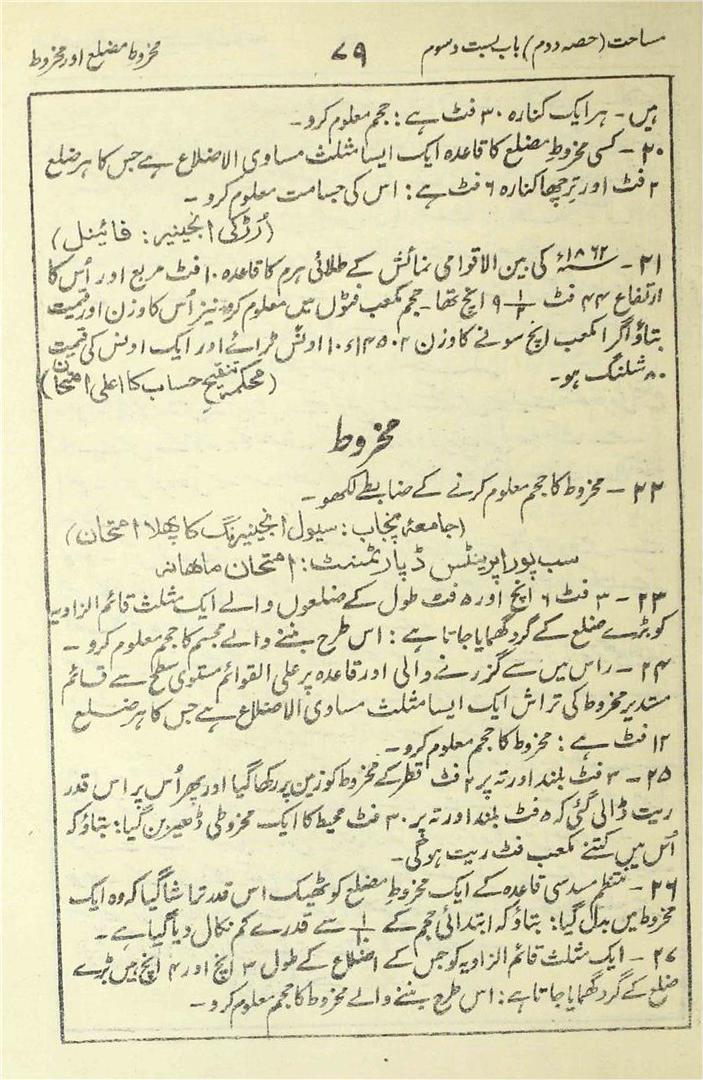 مساحت (حصہ دوم) باب بست و سوم ۷۹ مخروط مضلع اور مخروط
ہیں - ہر ایک کنارہ ۳۰ فٹ ہے : حجم معلوم کرو -
۲۰ - کسی مخروط مضلع کا قاعدہ ایک ایسا مثلث مساوی الاضلاع ہے جس کا ہر ضلع
۲ فٹ اور ترچھا کنارہ ۶ فٹ ہے : اس کی جسامت معلوم کرو -
(رُڑکی انجینیر : فائینل)
۲۱ - ۱۸۶۲ء کی بین الاقوامی نمائش کے طلائی ہرم کا قاعدہ ۱۰ فٹ مربع اور اُس کا
ارتفاع ۴۴ فٹ ۹ ۱/۲ انچ تھا - حجم مکعب فٹوں میں معلوم کرو نیز اُس کا وزن اور قیمت
بتاؤ اگر ۱ مکعب انچ سونے کا وزن ۱۰ء۱۴۵۰۲ اونس ٹرائے اور ایک اونس کی قیمت
۸۰ شلنگ ہو - (محکمہ تنقیح حساب کا اعلیٰ امتحان)
مخروط
۲۲ - مخروط کا حجم معلوم کرنے کے ضابطے لکھو -
(جامعہ پنجاب : سیول انجینیرنگ کا پہلا امتحان)
سب پور اپرینٹس ڈپارٹمنٹ : امتحان ماھانہ
۲۳ - ۳ فٹ ۶ انچ اور ۵ فٹ طول کے ضلعوں والے ایک مثلث قائم الزاویہ
کو بڑے ضلع کے گرد گھمایا جاتا ہے : اس طرح بننے والے مجسم کا حجم معلوم کرو -
۲۴ - راس میں سے گزرنے والی اور قاعدہ پر علی القوائم مستوی سطح سے قائم
مستدیر مخروط کی تراش ایک ایسا مثلث مساوی الاضلاع ہے جس کا ہر ضلع
۱۲ فٹ ہے : مخروط کا حجم معلوم کرو -
۲۵ - ۳ فٹ بلند اور تہ پر ۲ فٹ قطر کے مخروط کو زمین پر رکھا گیا اور پھر اُس پر اس قدر
ریت ڈالی گئی کہ ۵ فٹ بلند اور تہ پر ۳۰ فٹ محیط کا ایک مخروطی ڈھیر بن گیا : بتاؤ کہ
اُس میں کتنے مکعب فٹ ریت ہوگی -
۲۶ - منتظم مسدسی قاعدہ کے ایک مخروط مضلع کو ٹھیک اس قدر تراشا گیا کہ وہ ایک
مخروط میں بدل گیا : بتاؤ کہ ابتدائی حجم کے سے قدرے کم نکال دیا گیا ہے -
۲۷ - ایک مثلث قائم الزاویہ کو جس کے اضلاع کے طول ۳ انچ اور ۴ انچ ہیں بڑے
ضلع کے گرد گھمایا جاتا ہے : اس طرح بننے والے مخروط کا حجم معلوم کرو -